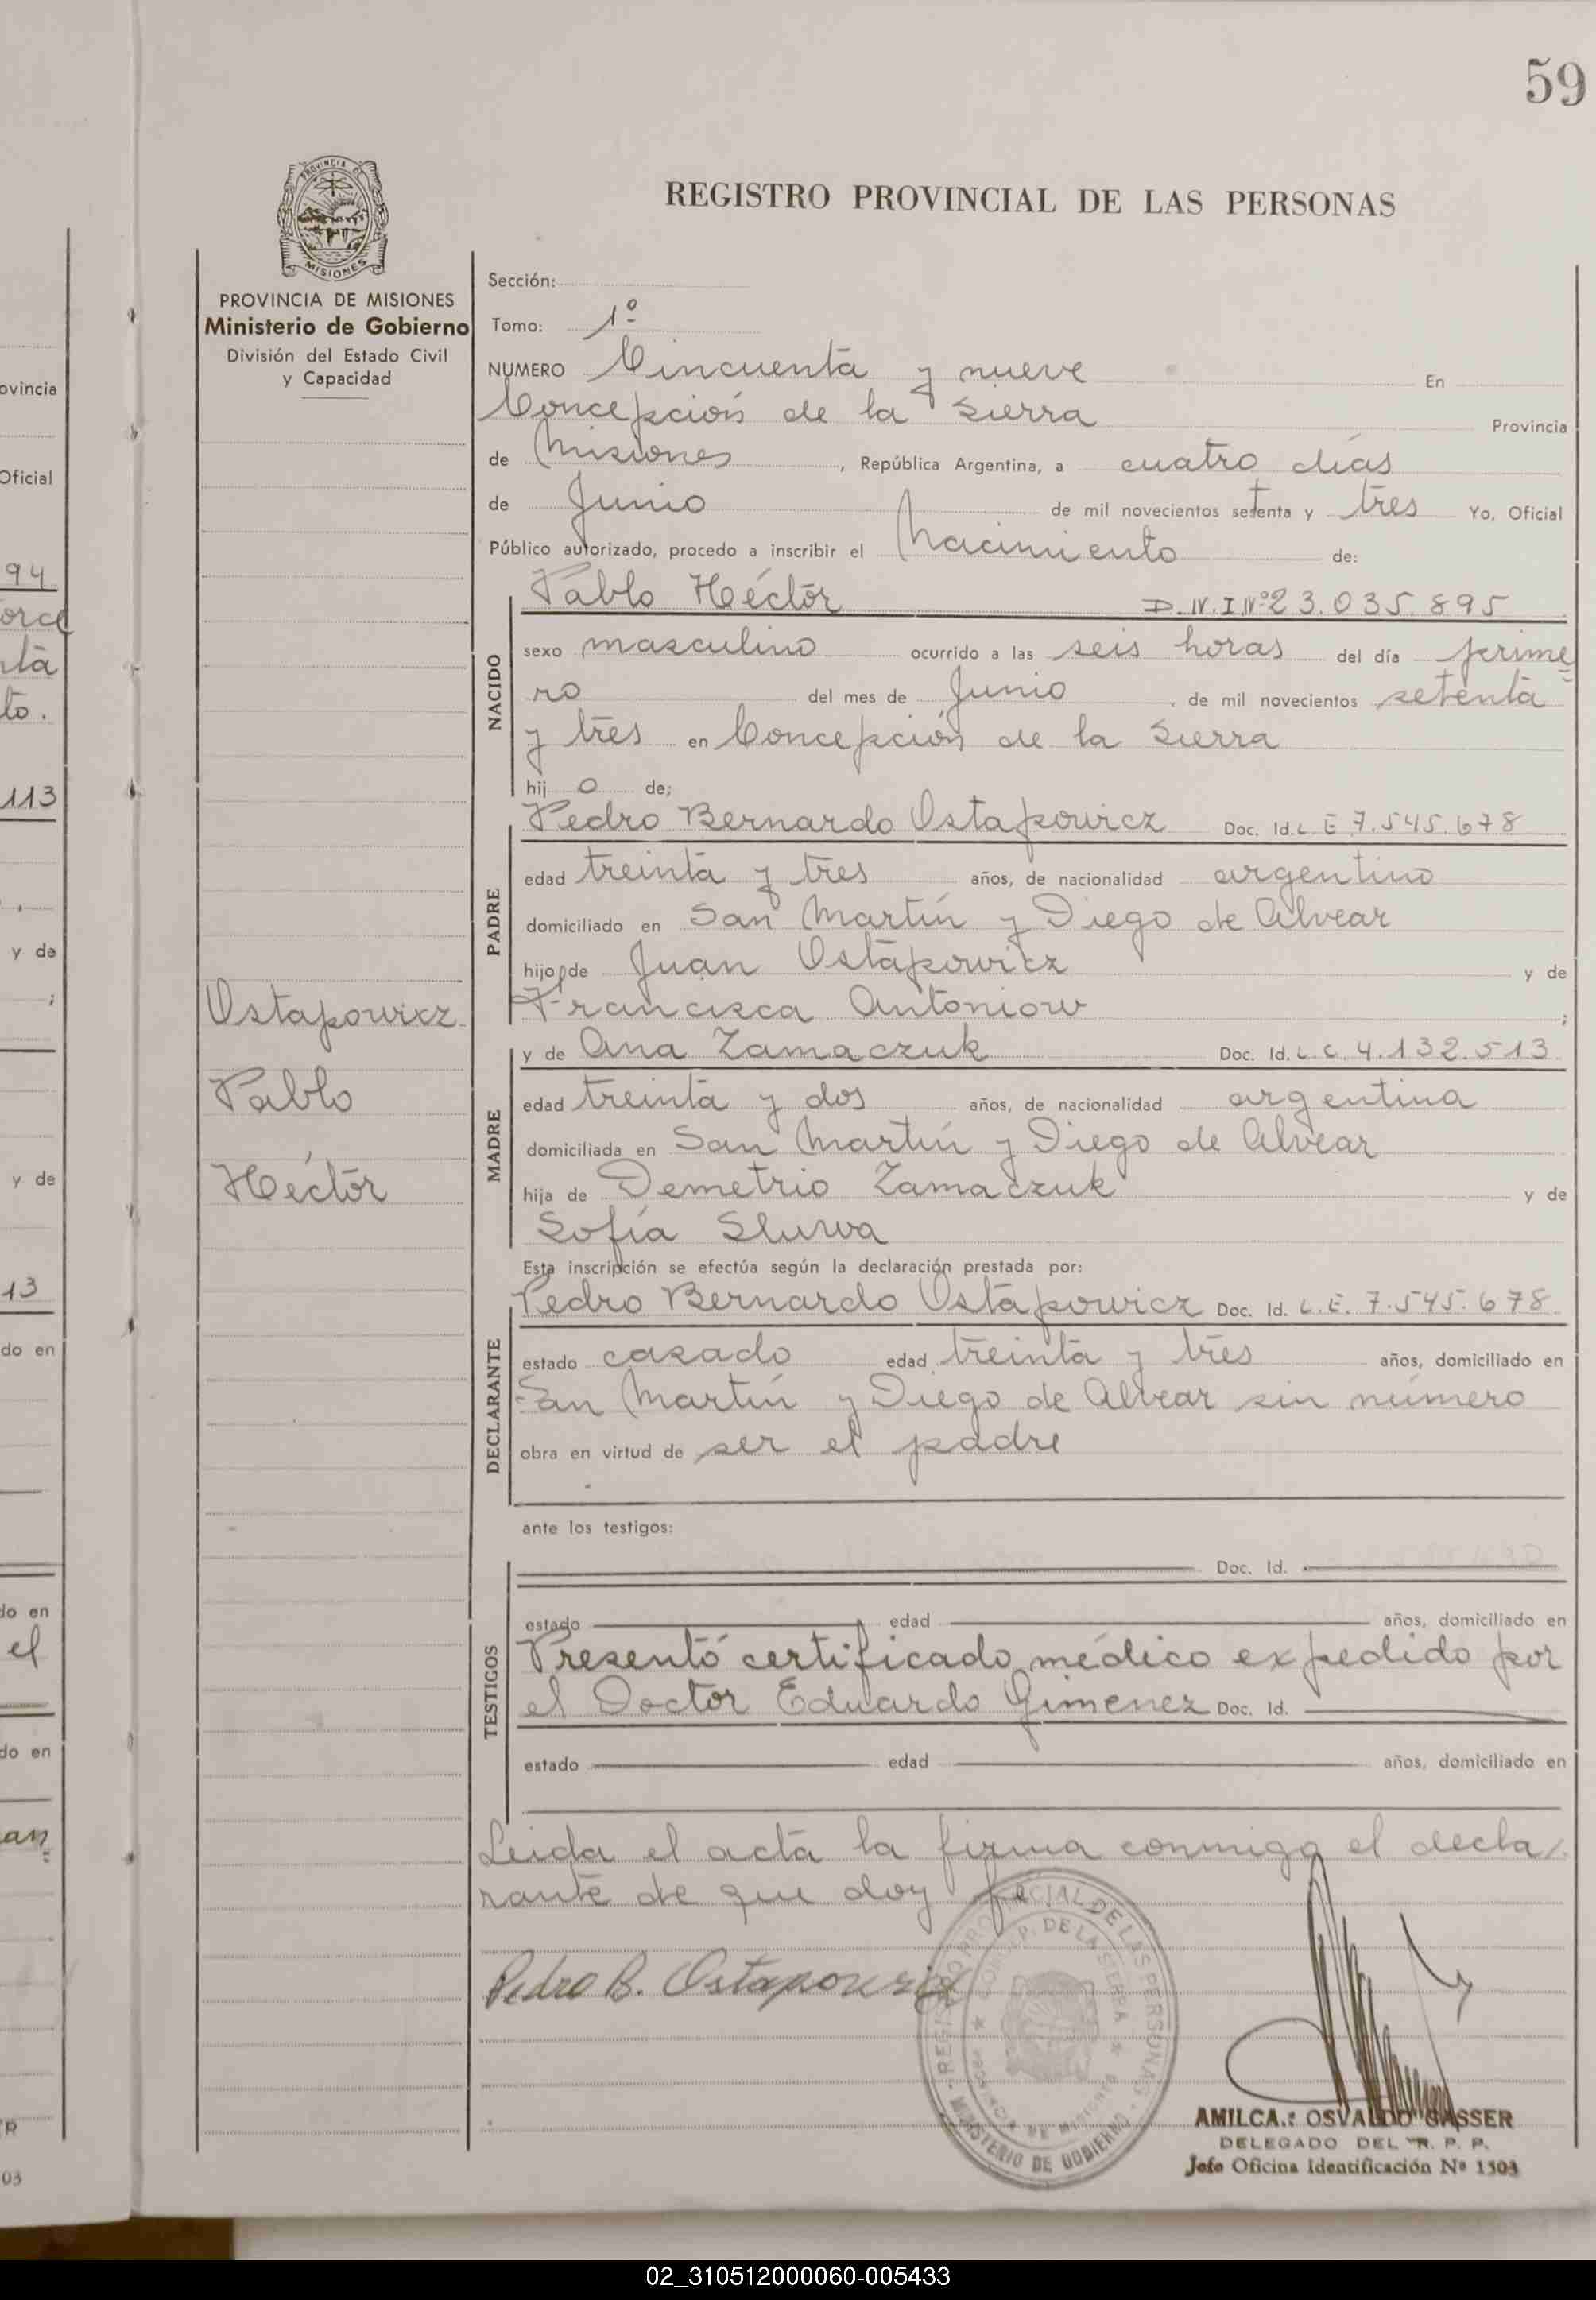 59
PROVINCIA DE
MISIONES
PROVINCIA DE MISIONES
Ministerio de Gobierno
División del Estado Civil
y Capacidad
Ostapowicz
Pablo
Héctor
REGISTRO PROVINCIAL DE LAS PERSONAS
Sección:
Tomo: 1º
NUMERO Cincuenta y nueve En
Concepción de la Sierra Provincia
de Misiones, República Argentina, a cuatro días
de Junio de mil novecientos setenta y tres Yo, Oficial
Público autorizado, procedo a inscribir el Nacimiento de:
Pablo Héctor D.N.I Nº 23.035.895
NACIDO
sexo masculino ocurrido a las seis horas del día prime=
ro del mes de Junio de mil novecientos setenta
y tres en Concepción de la Sierra
hij o de;
PADRE
Pedro Bernardo Ostapowicz Doc. Id. L E 7.545.678
edad treinta y tres años, de nacionalidad argentino
domiciliado en San Martín y Diego de Alvear
hijo de Juan Ostapowicz y de
Francisca Antoniow ;
MADRE
y de Ana Zamaczuk Doc. Id. L.C. 4.132.513
edad treinta y dos años, de nacionalidad argentina
domiciliada en San Martín y Diego de Alvear
hija de Demetrio Zamaczuk y de
Sofía Sluwa
Esta inscripción se efectúa según la declaración prestada por:
DECLARANTE
Pedro Bernardo Ostapowicz Doc. Id. L.E. 7.545.678
estado casado edad treinta y tres años, domiciliado en
San Martín y Diego de Alvear sin número
obra en virtud de ser el padre
ante los testigos:
TESTIGOS
Doc. Id.
estado edad años, domiciliado en
Presentó certificado médico expedido por
el Doctor Eduardo Gimenez Doc. Id.
estado edad años, domiciliado en
Leida el acta la firma conmigo el decla/
rante de que doy fe
Pedro B. Ostapowicz
REGISTRO PROVINCIAL DE LAS PERSONAS
CONCEP. DE LA SIERRA
PROVINCIA DE MISIONES
MINISTERIO DE GOBIERNO
AMILCA.: OSVALDO GASSER
DELEGADO DEL R. P. P.
Jefe Oficina Identificación Nº 1303
ovincia
Oficial
94
orce
nta
to.
113
y de
;
y de
13
do en
do en
el
do en
an
=
P
03
02_310512000060-005433